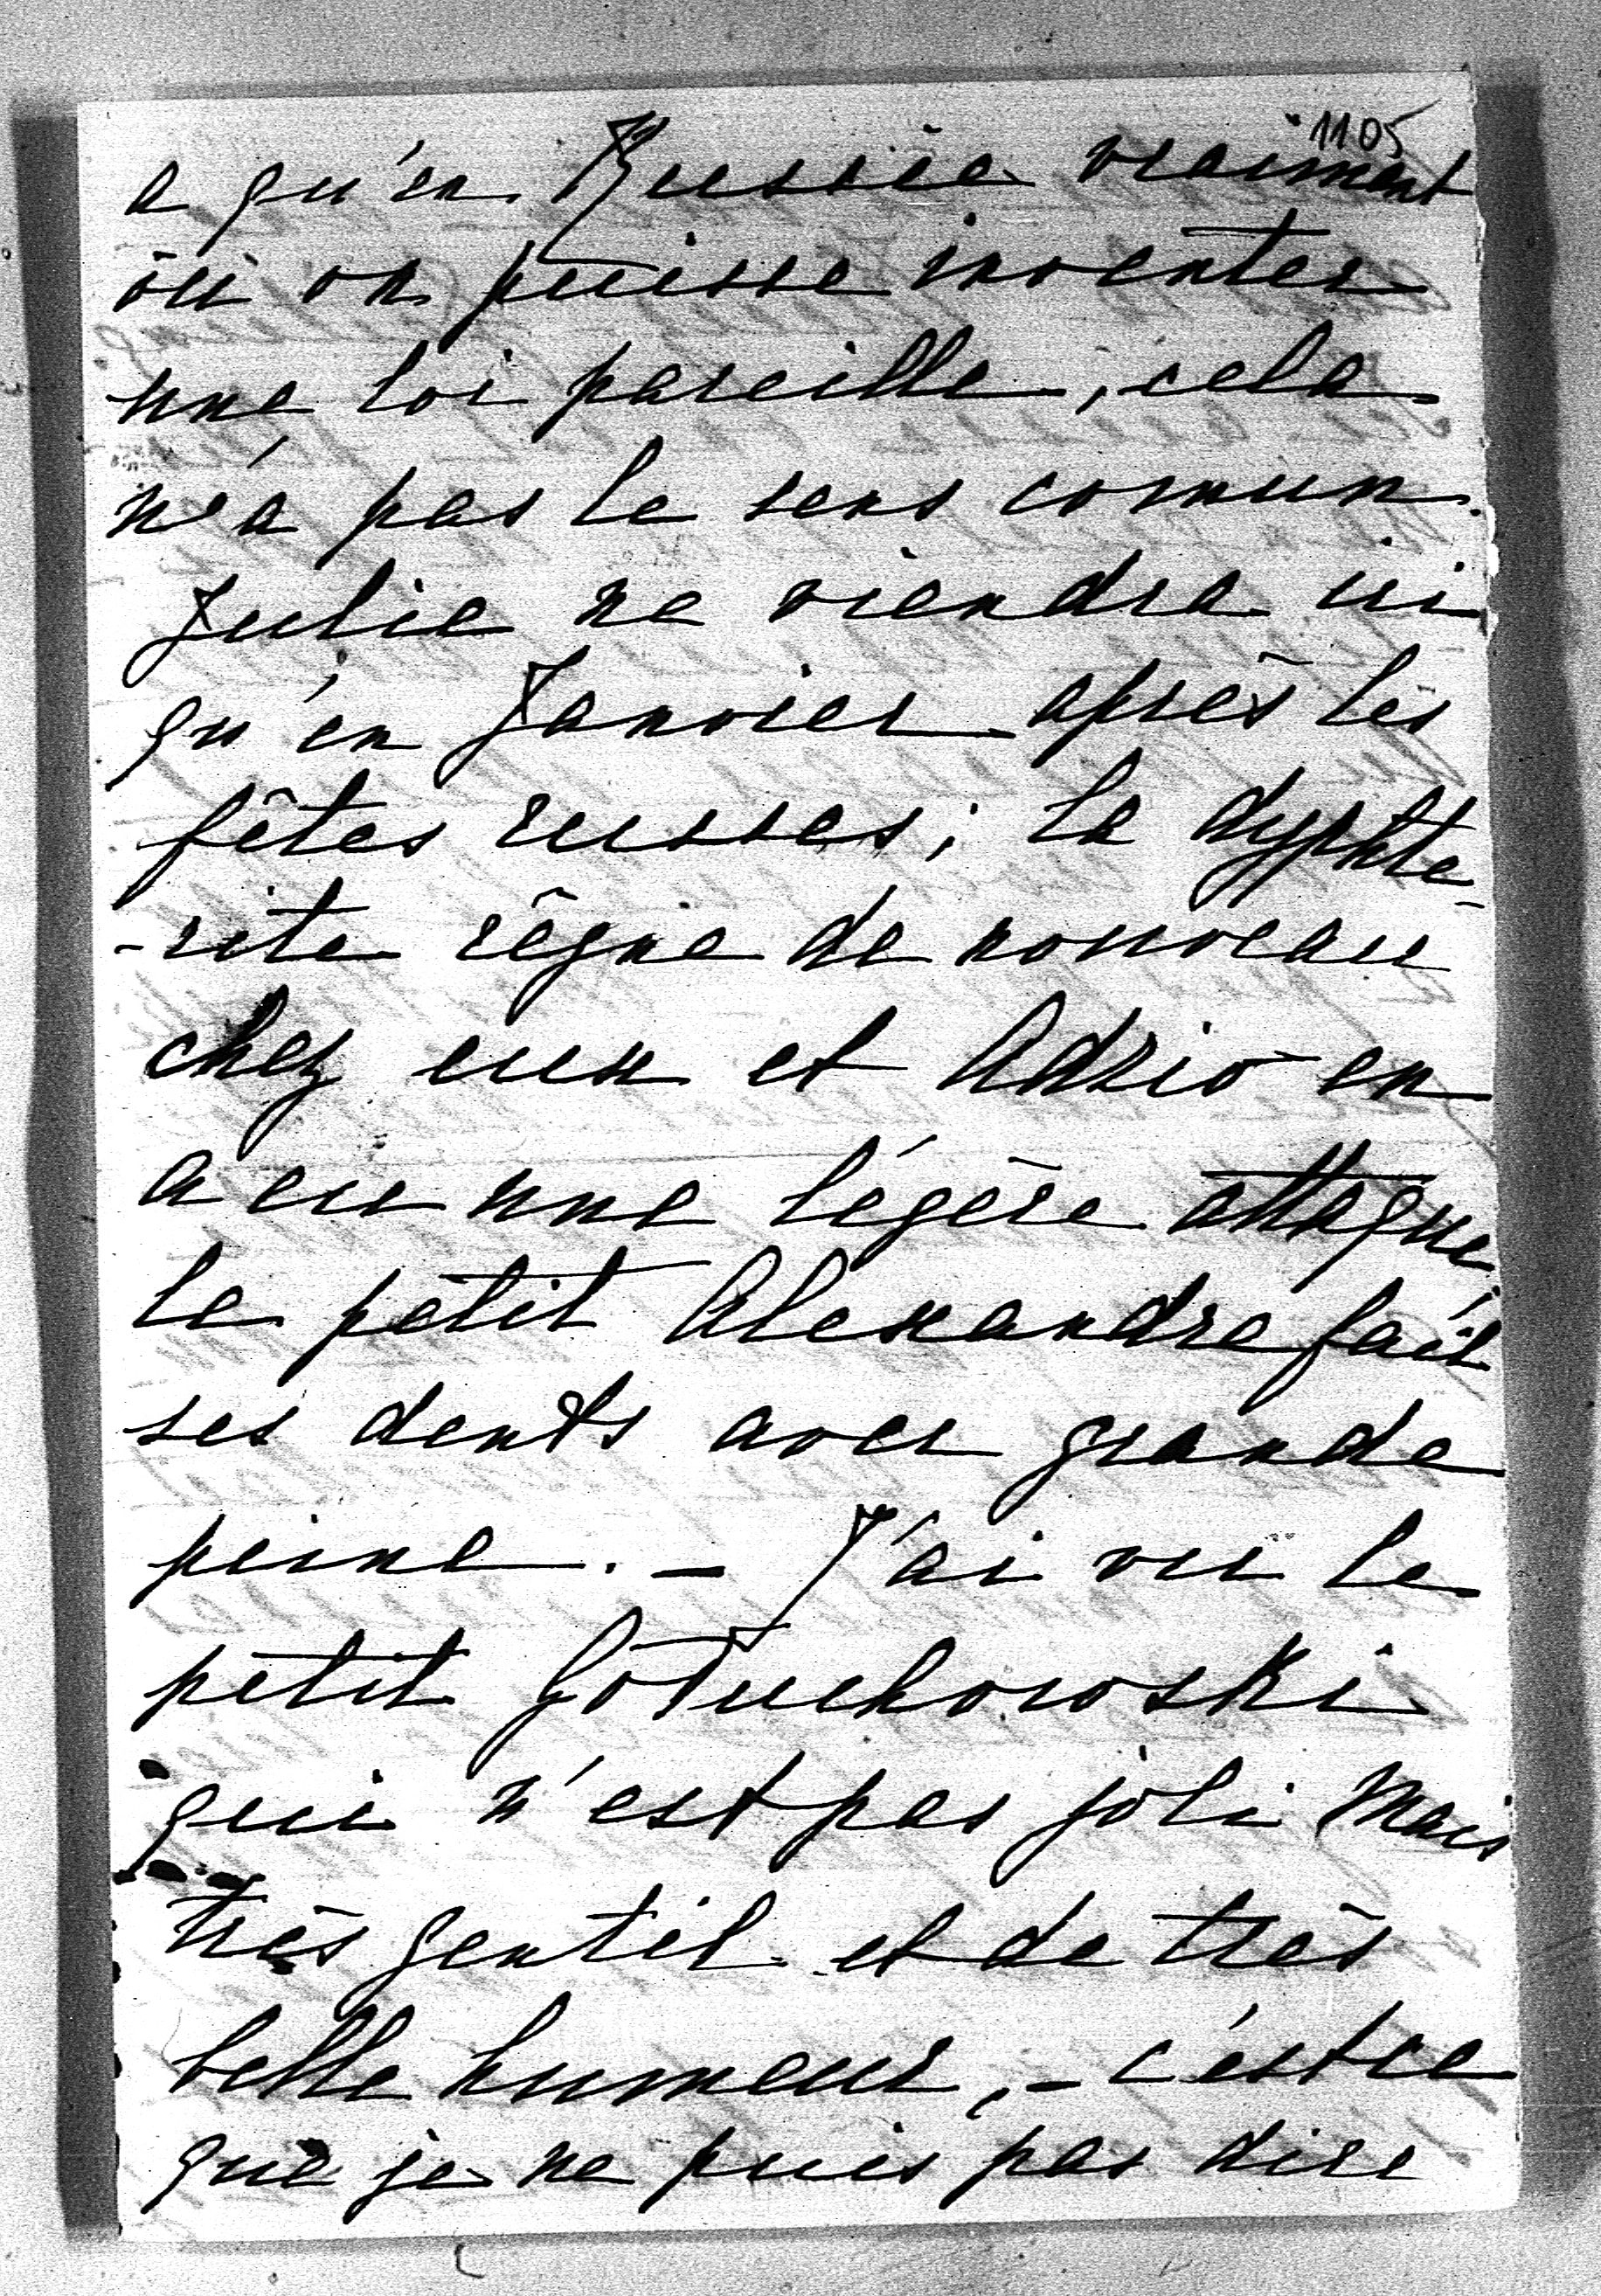 1105
a qu'en Russie vraiment
où on puisse inventer
une loi pareille, cela
n'a pas le sens comun.
Julie ne viendra ici
qu'en Janvier après les
fêtes russes; la dyphte-
-rite règne de nouveau
chez eux et Adzio en
a eu une légère attaque,
le petit Alexandre fait
ses dents avec grande
peine. - J'ai vu le
petit Gołuchowski
qui n'est pas joli mais
très gentil et de très
belle humeur, - c'est ce
que je ne puis pas dire